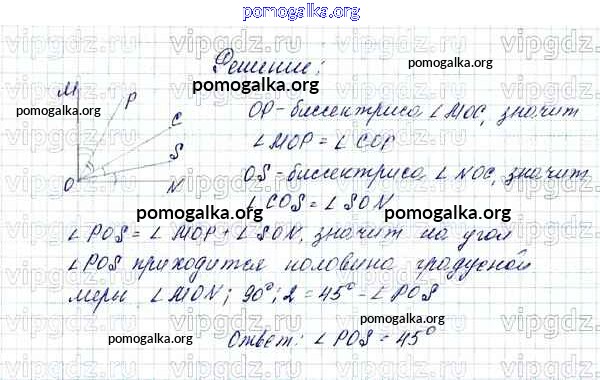 pomogalka.org
Решение:
M
P
C
S
O
N
OP - биссектриса ∠MOC, значит
∠MOP = ∠COP
OS - биссектриса ∠NOC, значит
∠COS = ∠SON
∠POS = ∠MOP + ∠SON, значит на угол
∠POS приходится половина градусной
меры ∠MON; 90°:2 = 45° - ∠POS
Ответ: ∠POS = 45°
pomogalka.org
pomogalka.org
pomogalka.org
pomogalka.org
pomogalka.org
pomogalka.org
pomogalka.org
pomogalka.org
vipgdz.ru